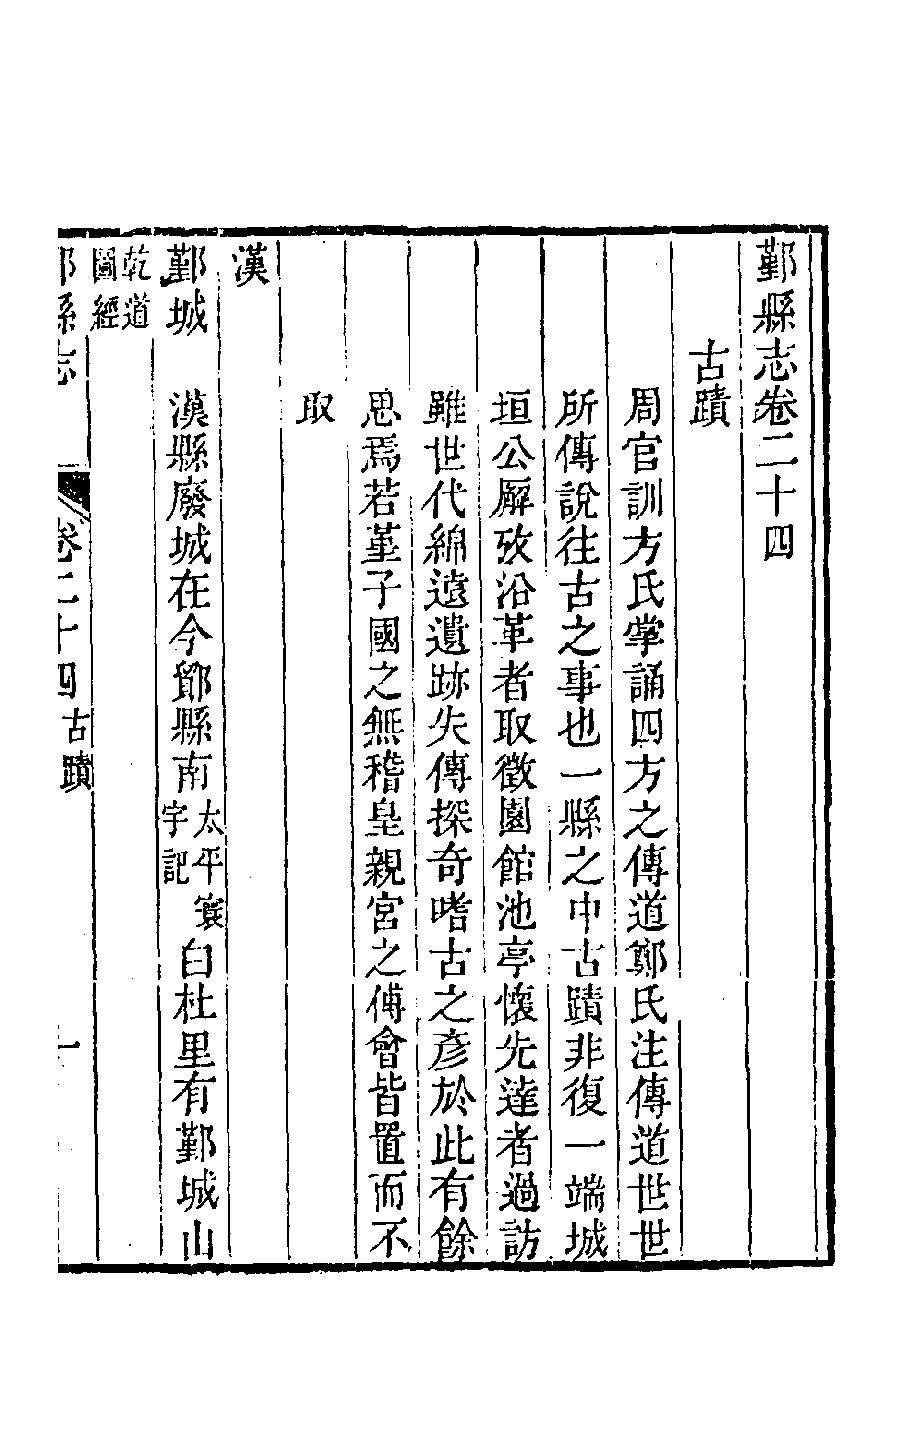 鄞縣志卷二十四
古蹟
周官訓方氏掌誦四方之傳道鄭氏注傳道世世
所傳說往古之事也一縣之中古蹟非復一端城
垣公廨攷沿革者取徵園館池亭懷先達者過訪
雖世代綿遠遺跡失傳探奇嗜古之彥於此有餘
思焉若堇子國之無稽皇親宮之傅會皆置而不
取
漢
鄞城　漢縣廢城在今鄮縣南太平寰宇記白杜里有鄞城山
乾道圖經
鄞縣志　卷二十四古蹟　一